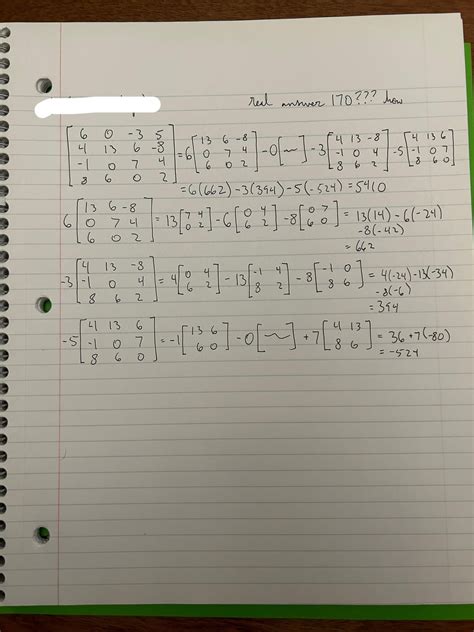 real answer 170??? how
[6 0 -3 5
4 13 6 -8
-1 0 7 4
8 6 0 2] = 6[13 6 -8
0 7 4
6 0 2] - 0[~] - 3[4 13 -8
-1 0 4
8 6 2] - 5[4 13 6
-1 0 7
8 6 0]
= 6(662) - 3(394) - 5(-524) = 5410
6[13 6 -8
0 7 4
6 0 2] = 13[7 4
0 2] - 6[0 4
6 2] - 8[0 7
6 0] = 13(14) - 6(-24)
-8(-42)
= 662
-3[4 13 -8
-1 0 4
8 6 2] = 4[0 4
6 2] - 13[-1 4
8 2] - 8[-1 0
8 6] = 4(-24) - 13(-34)
-8(-6)
= 394
-5[4 13 6
-1 0 7
8 6 0] = -1[13 6
6 0] - 0[~] + 7[4 13
8 6] = 36 + 7(-80)
= -524